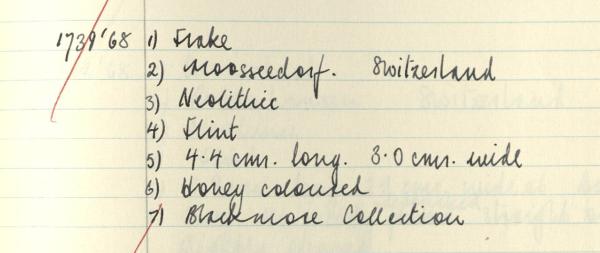 1739'68 1) Flake
2) Moosseedorf. Switzerland
3) Neolithic
4) Flint
5) 4.4 cms. long. 3.0 cms. wide
6) Honey coloured
7) Blackmore Collection